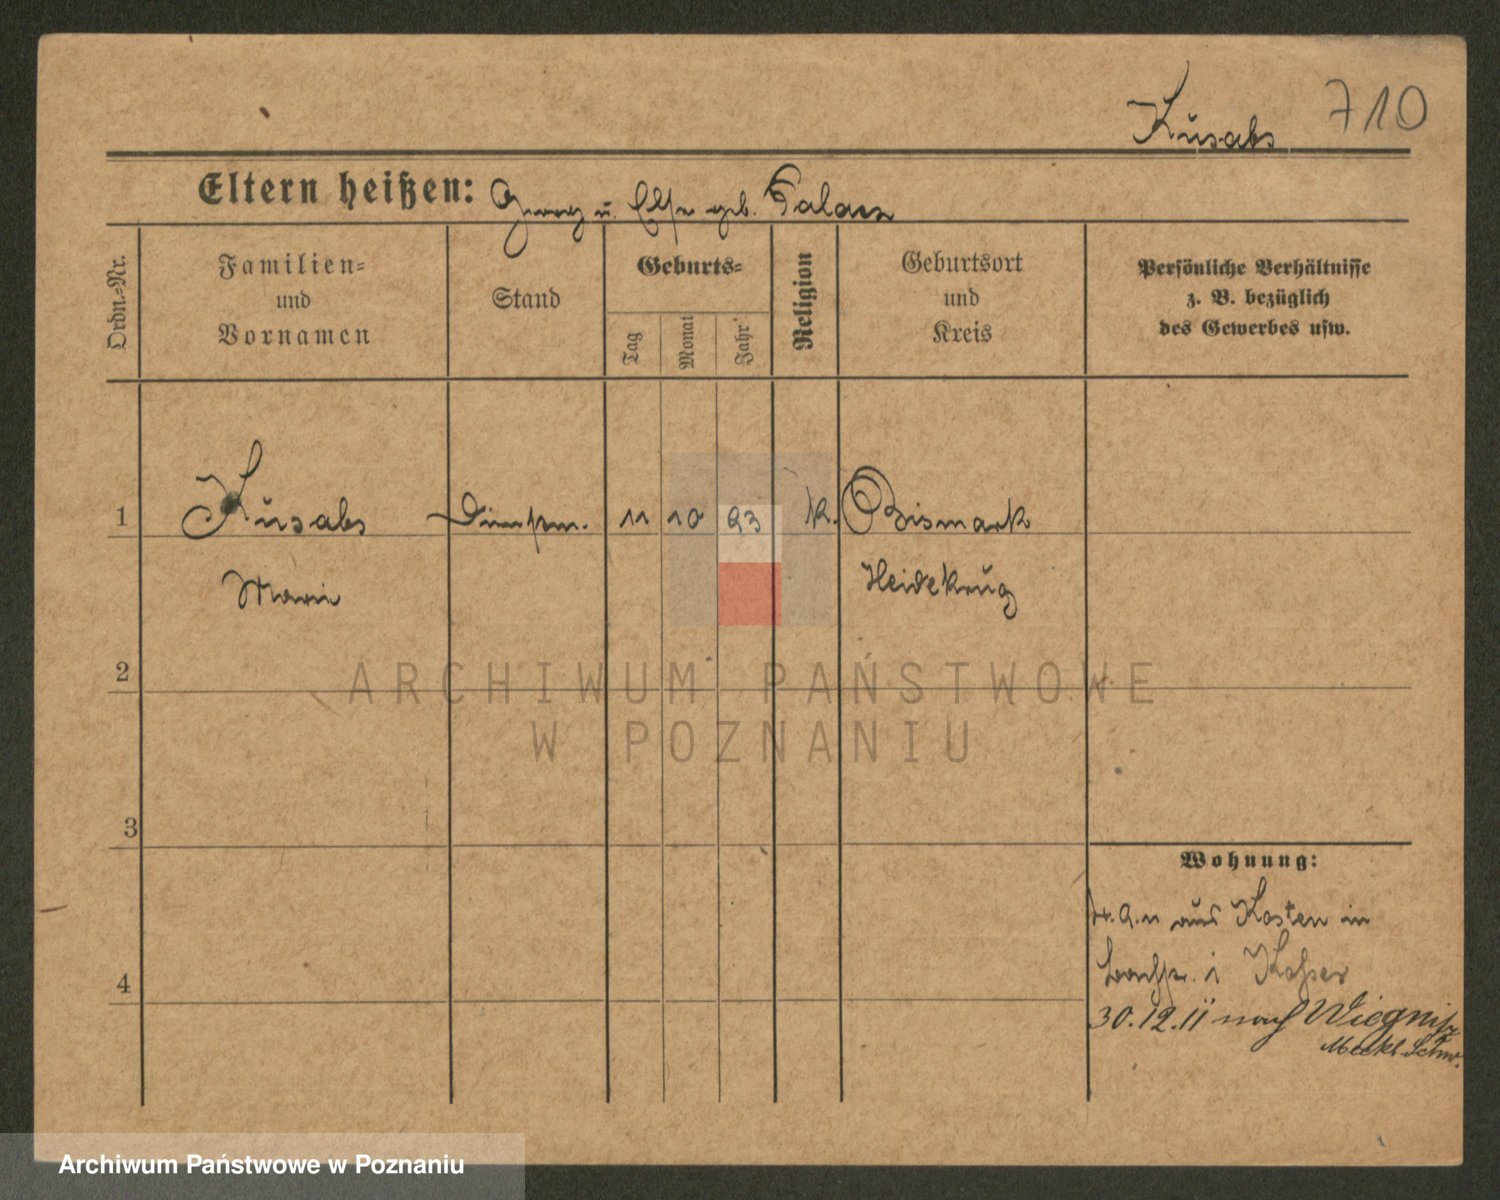 710
Kusabs
Eltern heißen: Georg u. Else geb. Palacz
Ordn.-Nr.
Familien-
und
Vornamen
Stand
Geburts-
Tag
Monat
Jahr
Religion
Geburtsort
und
Kreis
Persönliche Verhältnisse
z. B. bezüglich
des Gewerbes usw.
1 Kusabs 11 10 93 k. Bismark
Marie Heidekrug
2
ARCHIWUM PAŃSTWOWE
W POZNANIU
3
Wohnung:
aus Kosten in
4
30.12.11 nach
Meckl. Schw.
Archiwum Państwowe w Poznaniu